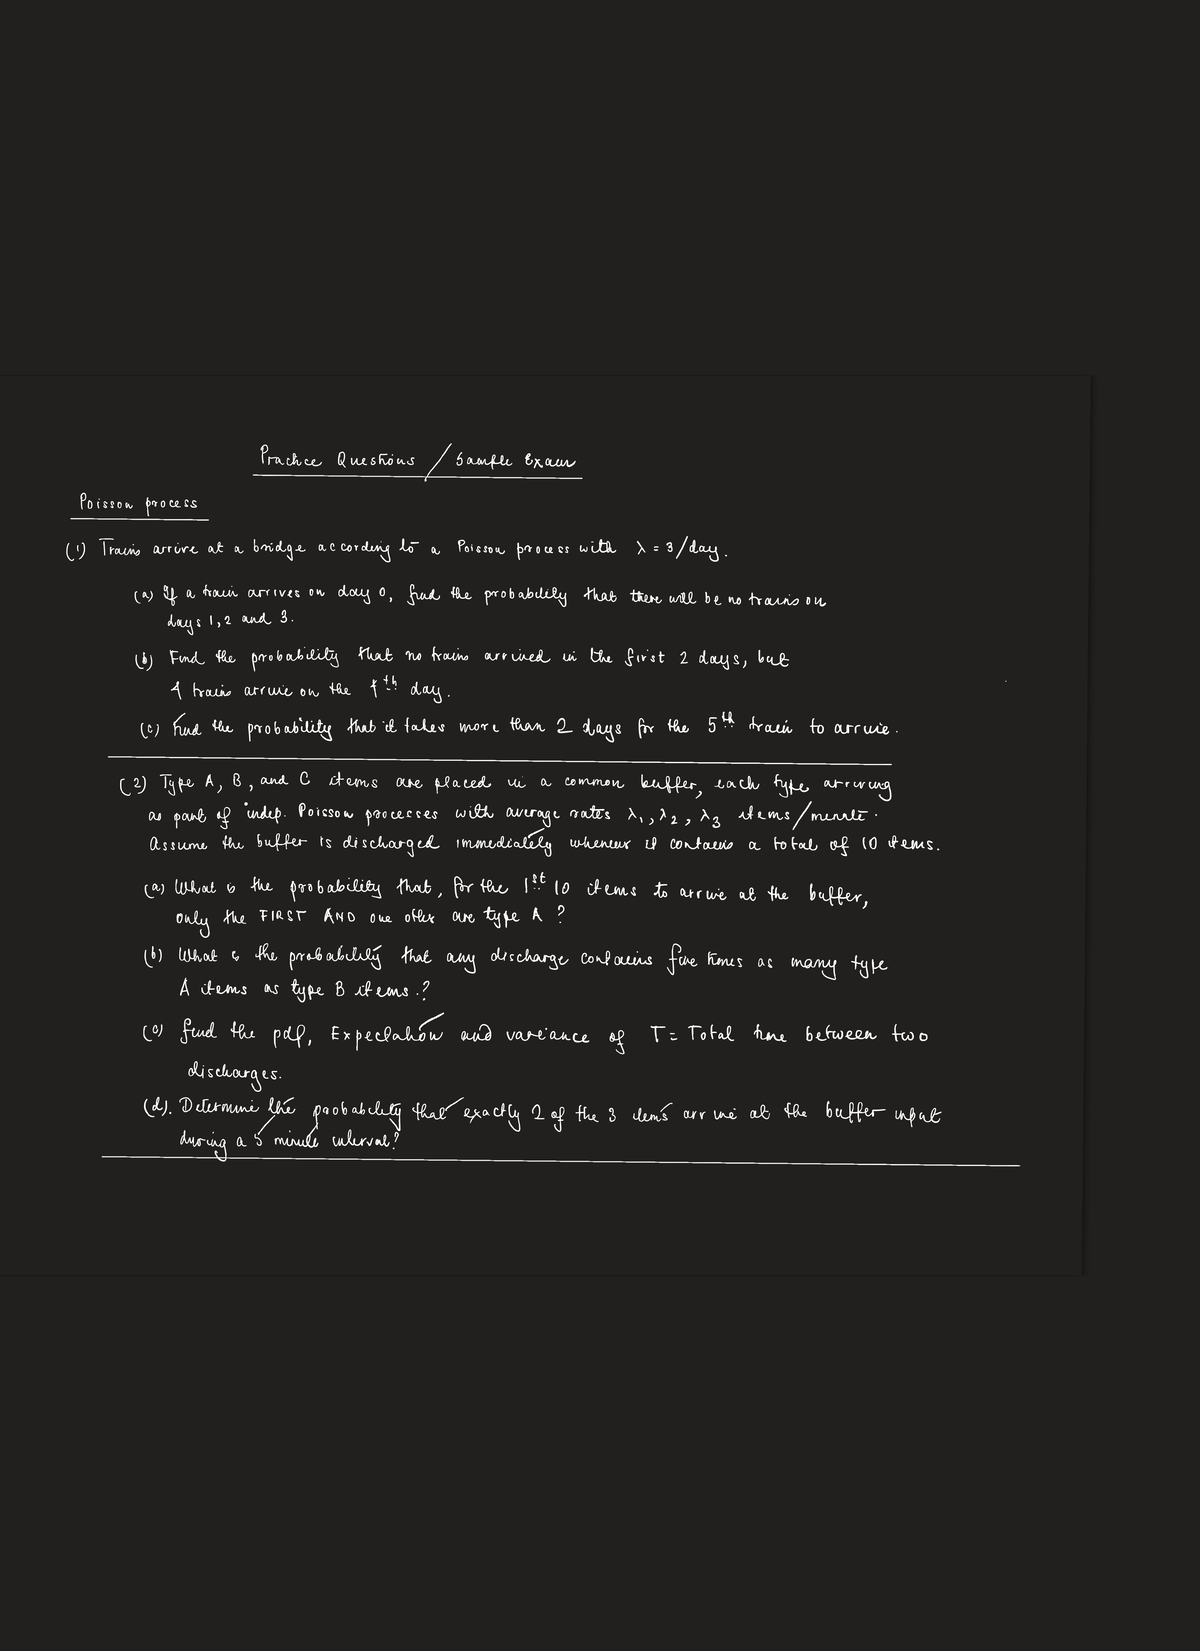 Practice Questions / Sample Exam
Poisson process
(1) Trains arrive at a bridge according to a Poisson process with λ = 3/day.
(a) If a train arrives on day 0, find the probability that there will be no trains on
days 1, 2 and 3.
(b) Find the probability that no trains arrived in the first 2 days, but
4 trains arrive on the 4th day.
(c) Find the probability that it takes more than 2 days for the 5th train to arrive.
(2) Type A, B, and C items are placed in a common buffer, each type arriving
as part of indep. Poisson processes with average rates λ1, λ2, λ3 items/minute.
Assume the buffer is discharged immediately whenever it contains a total of 10 items.
(a) What is the probability that, for the 1st 10 items to arrive at the buffer,
only the FIRST AND one other are type A ?
(b) What is the probability that any discharge contains five times as many type
A items as type B items.?
(c) find the pdf, Expectation and variance of T = Total time between two
discharges.
(d). Determine the probability that exactly 2 of the 3 items arrive at the buffer input
during a 5 minute interval?